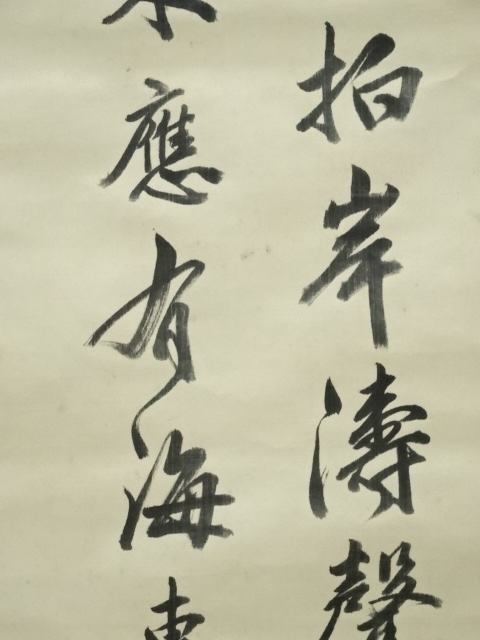 拍岸濤聲
應有海東